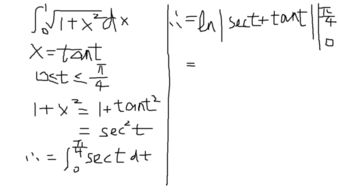 ∫₀¹ √(1+x²) dx
x = tan t
0 ≤ t ≤ π/4
1+x² = 1+tan t²
= sec² t
∴ = ∫₀^(π/4) sec t dt
∴ = ln |sec t + tan t| |₀^(π/4)
=